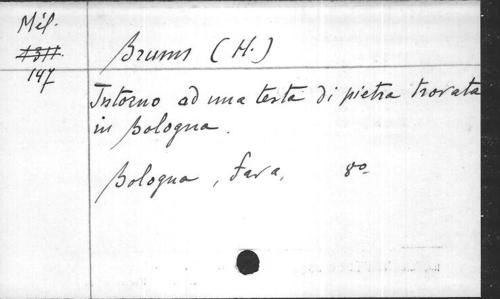 Mél.
1311.
147
Brunn (H.)
Intorno ad una testa di pietra trovata
in Bologna.
Bologna, Fava, 8º